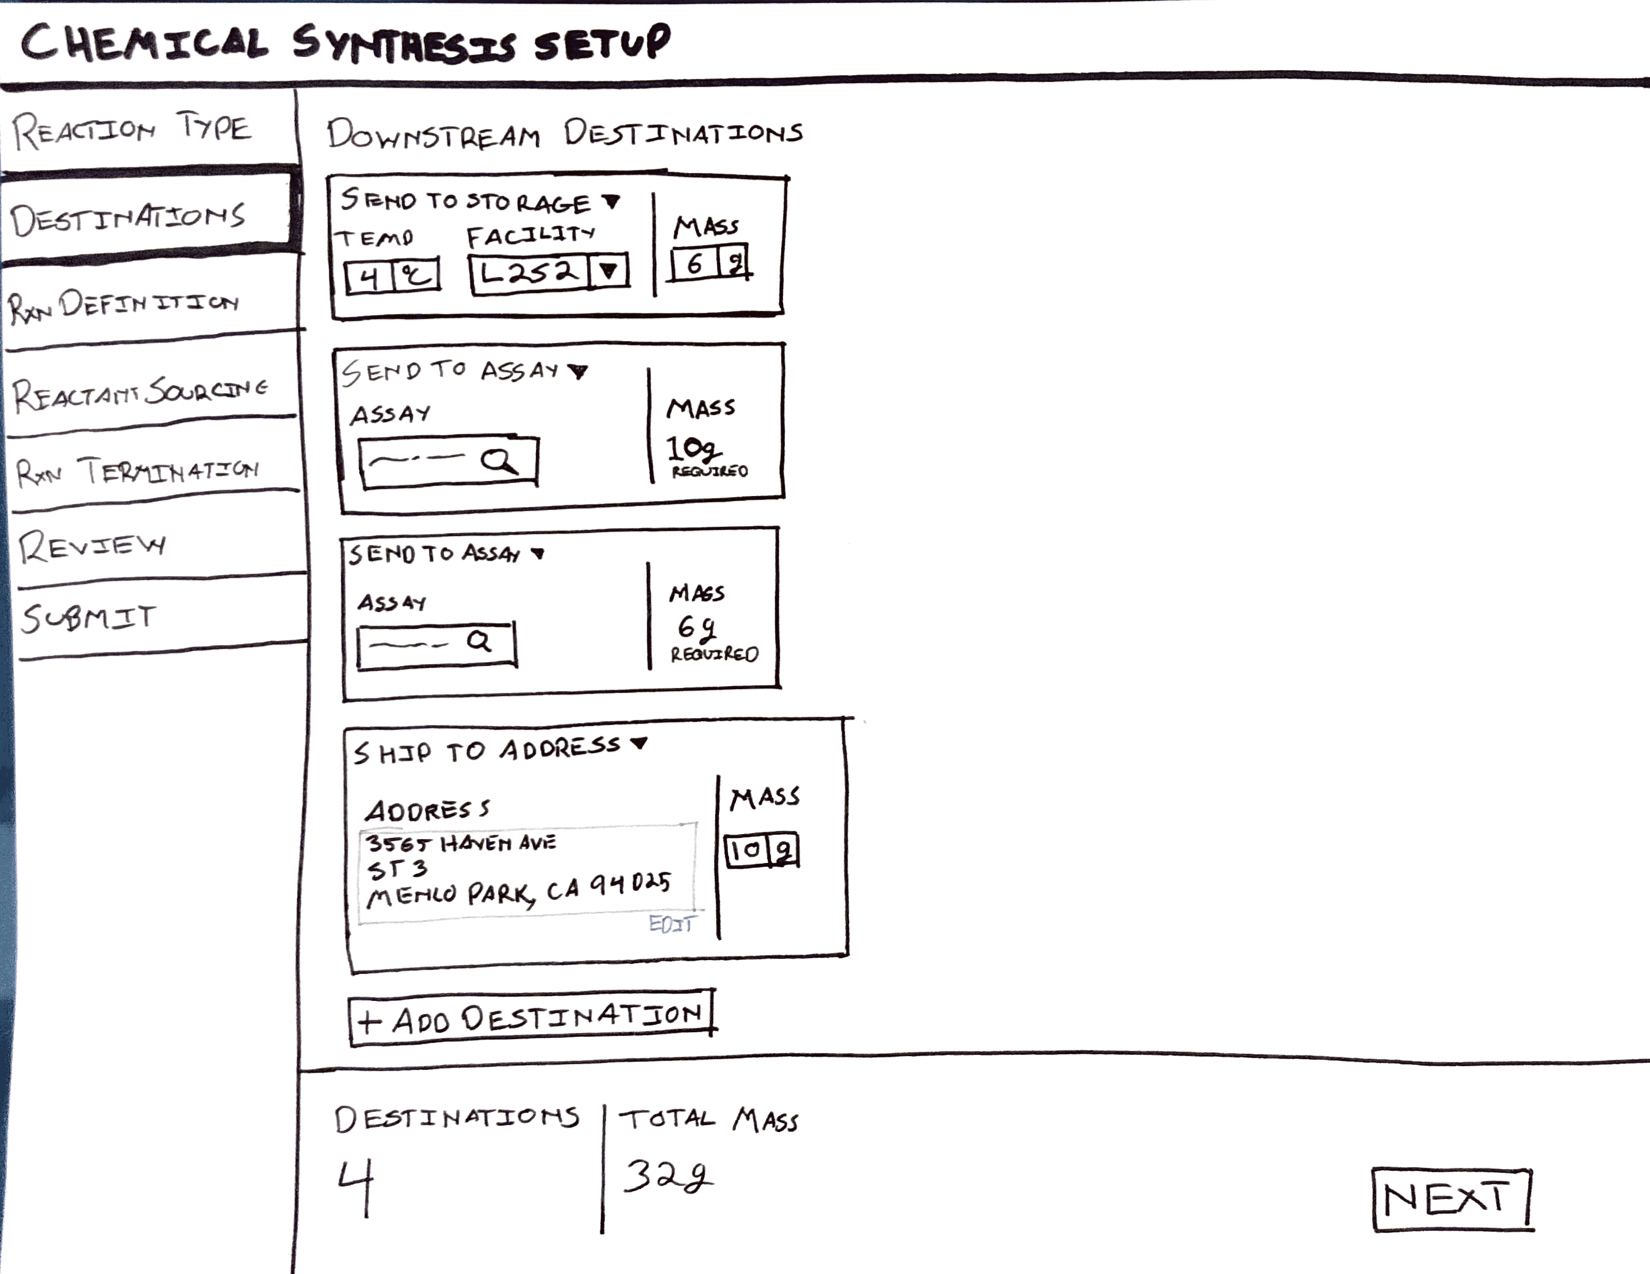 CHEMICAL SYNTHESIS SETUP
REACTION TYPE
DESTINATIONS
RXN DEFINITION
REACTANT SOURCING
RXN TERMINATION
REVIEW
SUBMIT
DOWNSTREAM DESTINATIONS
SEND TO STORAGE ▼
TEMP FACILITY MASS
4 °C L252 ▼ 6 g
SEND TO ASSAY ▼
ASSAY MASS
10g
REQUIRED
SEND TO ASSAY ▼
ASSAY MASS
6g
REQUIRED
SHIP TO ADDRESS ▼
ADDRESS MASS
3565 HAVEN AVE
ST 3
MENLO PARK, CA 94025
10 g
EDIT
+ ADD DESTINATION
DESTINATIONS TOTAL MASS
4 32g
NEXT